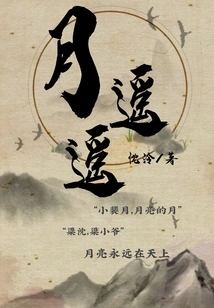 月
遥
遥
/著
“小龚月,月亮的月”
“梁沈,梁小爷”
月亮永远在天上